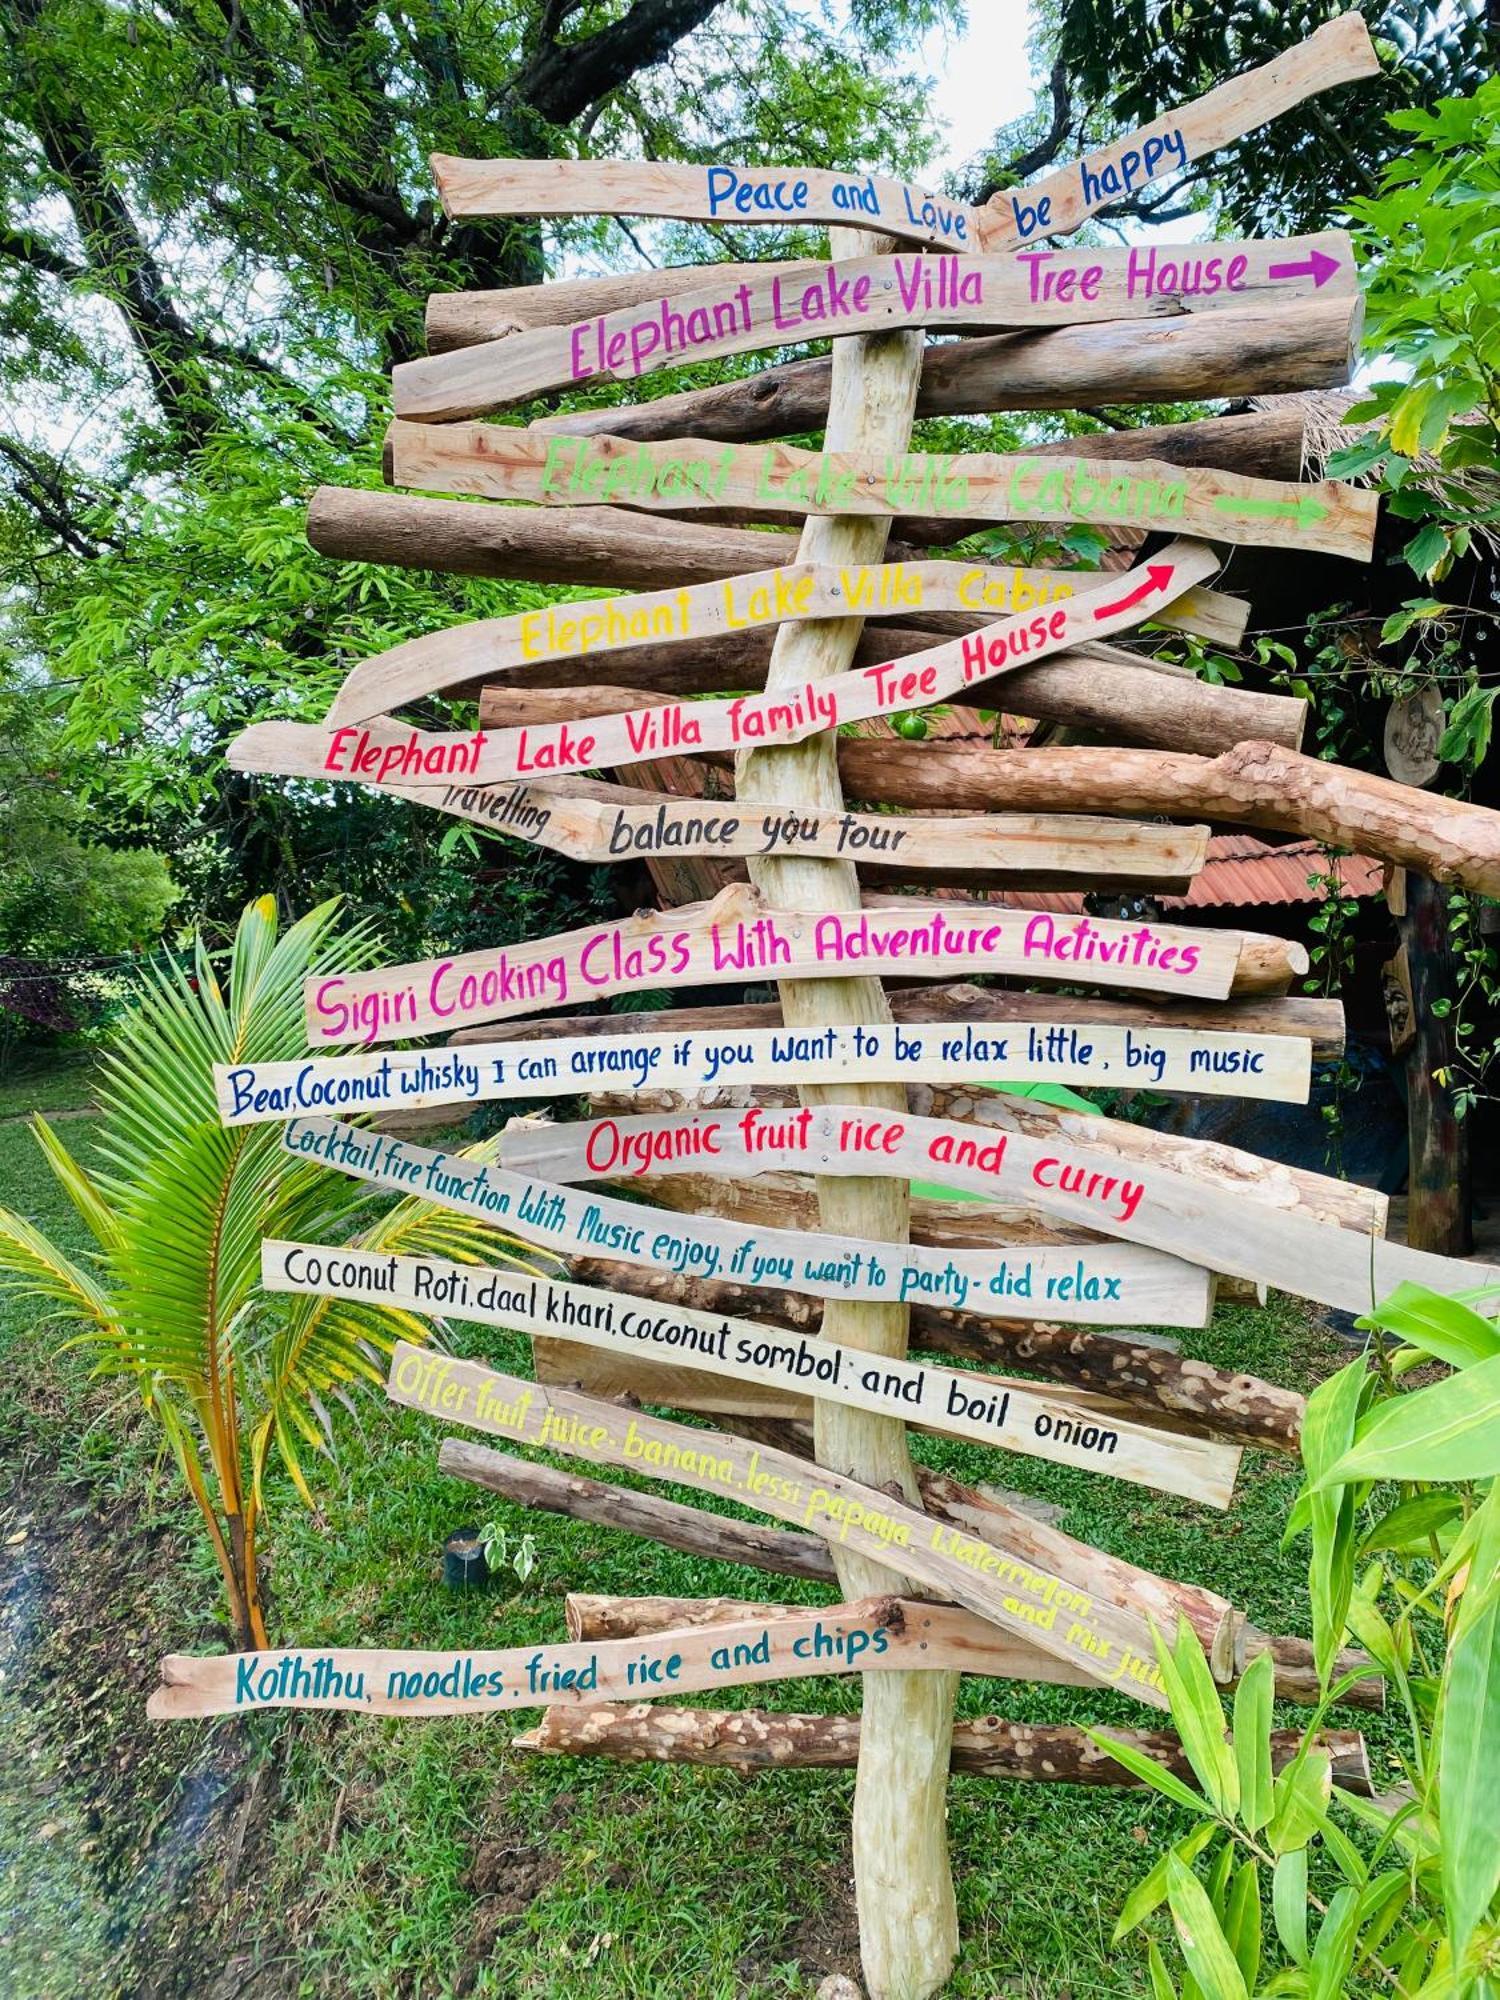 Peace and Love be happy
Elephant Lake Villa Tree House
Elephant Lake Villa Cabana
Elephant Lake Villa Cabin
Elephant Lake Villa family Tree House
Travelling balance you tour
Sigiri Cooking Class With Adventure Activities
Bear,Coconut whisky I can arrange if you want to be relax little, big music
Organic fruit rice and curry
Cocktail,fire function With Music enjoy, if you want to party-did relax
Coconut Roti.daal khari,coconut sombol: and boil onion
Offer fruit juice.banana,lessi papaya, Watermelon,
and mix
Koththu, noodles.fried rice and chips